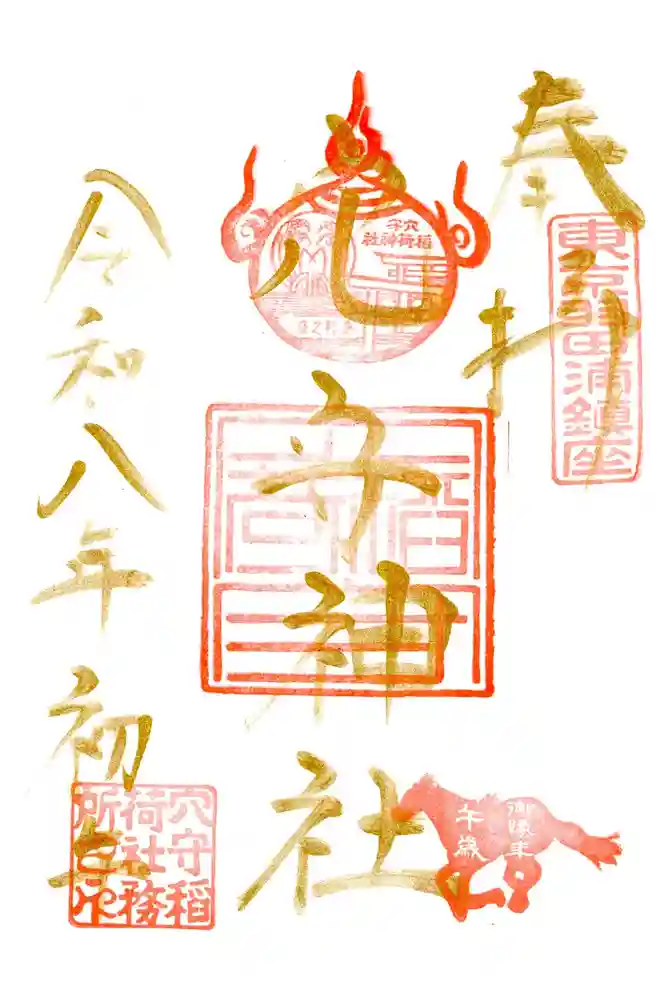 奉拝
東京羽田浦鎮座
穴守稲荷神社
穴守神社
御縁年
午歳
令和八年初午
穴守稲荷社務所之印